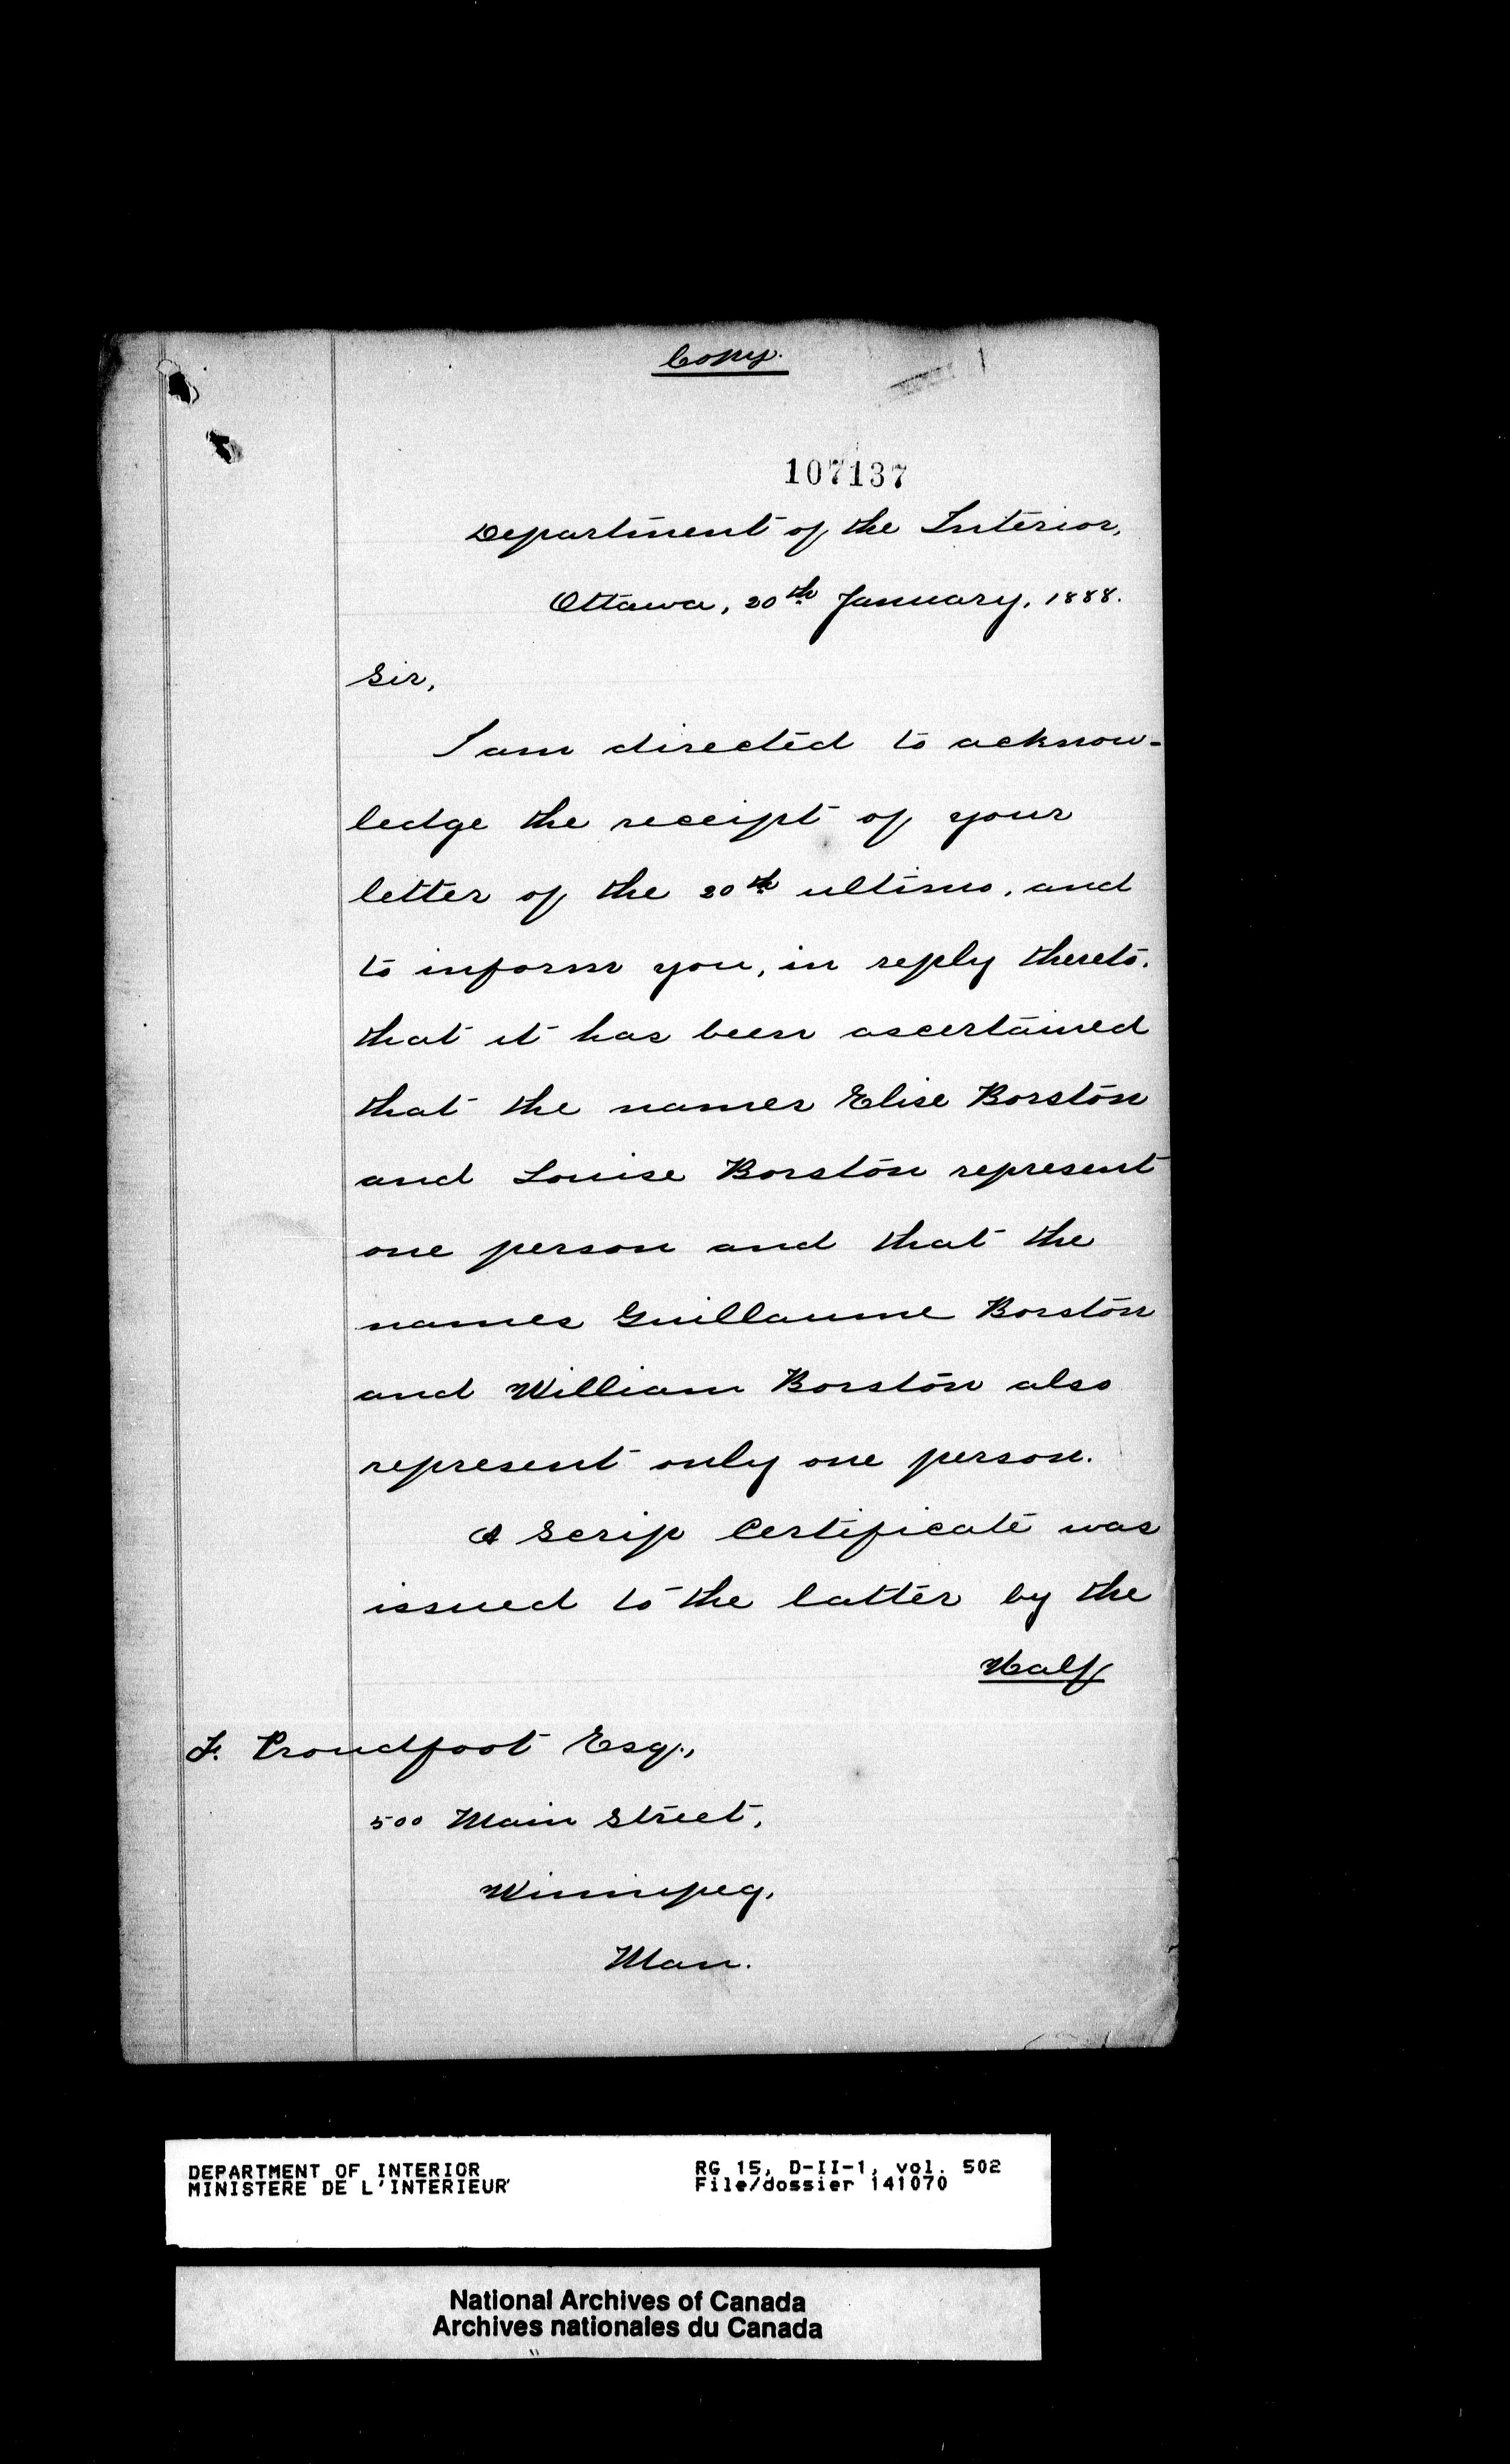 Copy.
107137
Department of the Interior,
Ottawa, 20th January, 1888.
Sir,
I am directed to acknow-
ledge the receipt of your
letter of the 20th ultimo, and
to inform you, in reply thereto,
that it has been ascertained
that the names Elise Borston
and Louise Borston represent
one person and that the
names Guillaume Borston
and William Borston also
represent only one person.
A Scrip Certificate was
issued to the latter by the
Half
F. Proudfoot Esq.,
500 Main Street,
Winnipeg,
Man.
DEPARTMENT OF INTERIOR
MINISTERE DE L'INTERIEUR
RG 15, D-II-1, vol. 502
File/dossier 141070
National Archives of Canada
Archives nationales du Canada